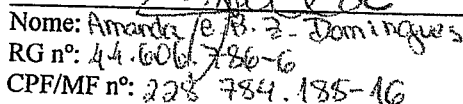 Nome: Amanda C. B. Z. Domingues
RG nº: 44.606.786-6
CPF/MF nº: 228 784.185-16